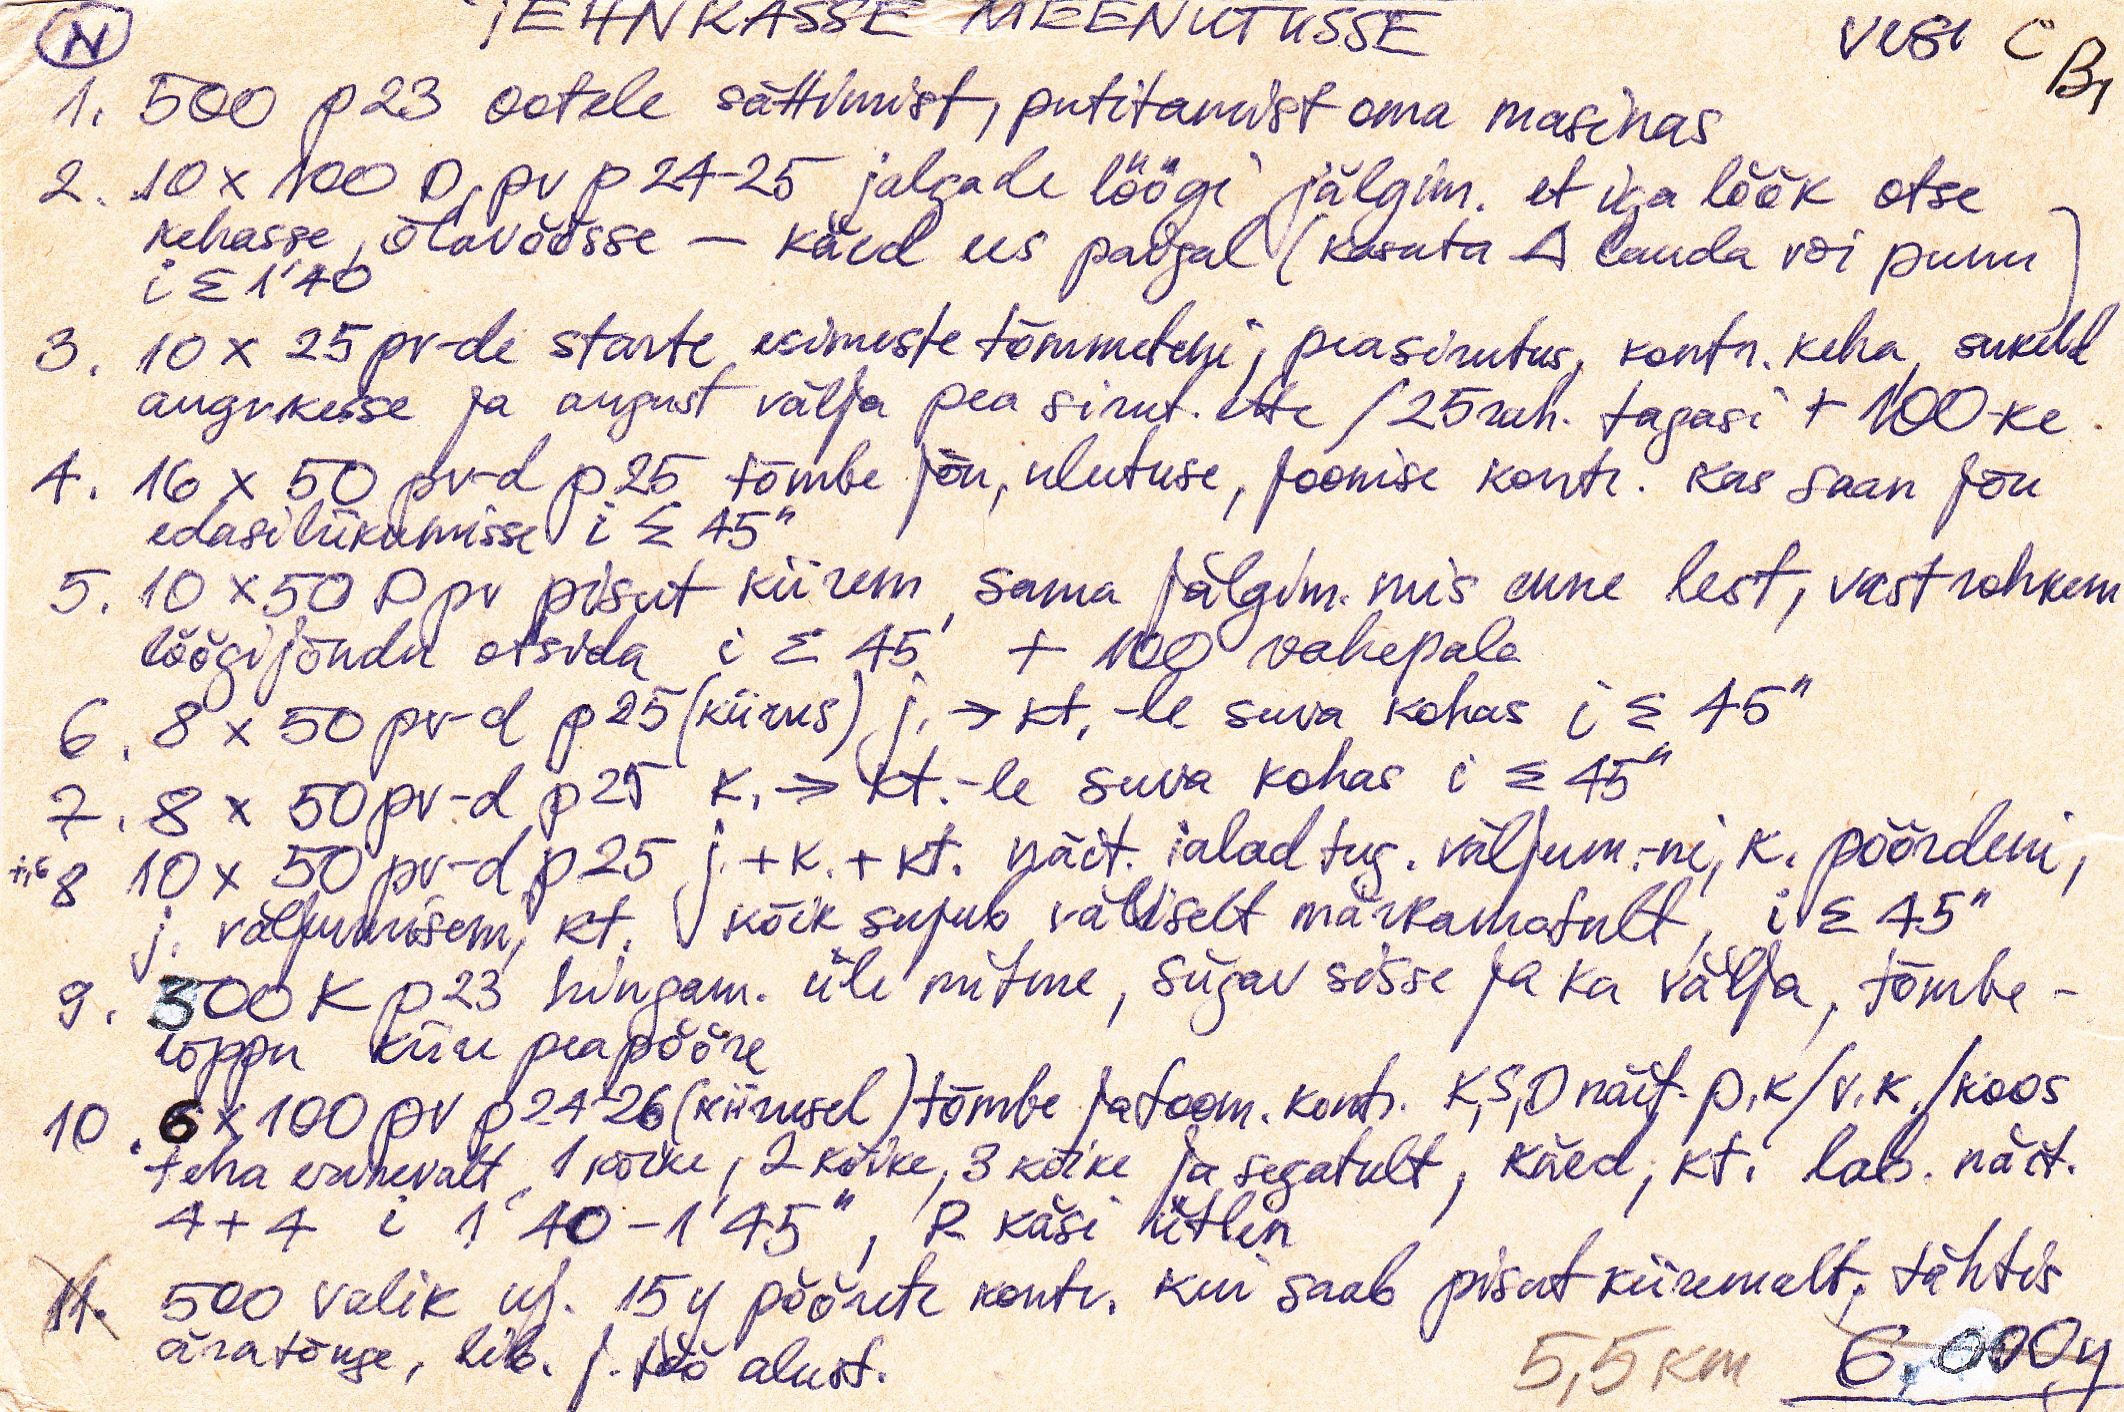 N TEHNKASSE MEENUTUSSE VESI C B1
1. 500 p 23 ootele sättimist, putitamist oma masinas
2. 10 x 100 D, pv p 24-25 jalgade löögi jälgim. et iga löök otse
kehasse, õlavöösse — käed ees paigal (kasuta Δ lauda või punu)
i Σ 1'40
3. 10 x 25 pv-de starte esimeste tõmmeteni, peasirutus, kontr. keha, sukeld
augukesse ja august välja pea sirut. ette / 25 rah. tagasi + 100-ke.
4. 16 x 50 pv-d p 25 tõmbe jõu, ulutuse, joonise kontr. kas saan jõu
edasiliikumisse i Σ 45"
5. 10 x 50 D pv pisut kiirem, sama jälgim. mis enne lest, vast rohkem
löögijõudu otsida i Σ 45' + 100 vahepala
6. 8 x 50 pv-d p 25 (kiirus) j. → kt. -le suva kohas i Σ 45"
7. 8 x 50 pv-d p 25 k. → kt.-le suva kohas i Σ 45"
8 10 x 50 pv-d p 25 j. + k. + kt. näit. jalad tug. väljum.-ni, k. pöördeni,
j. väljumiseni, kt. kõik sujub väliselt märkamatult, i Σ 45"
9. 300 K p 23 hingam. üle mitme, sügav sisse ja ka välja, tõmbe-
lõppu kiire peapööre
10. 6 x 100 pv p 24-26 (kiirusel) tõmbe ja toom. kontr. K,S,D näit. p.k/v.k./koos
teha erinevalt, 1 kõike, 2 kõike, 3 kõike ja segatult, käed, kt. lab. näit.
4+4 i 1'40-1'45", R käsi ütlen
11. 500 valik uj. 15 y pöörete kontr. kui saab pisut kiiremalt, tähtis
äratõuge, lib. j. töö alust.
5,5 km 6,000 y